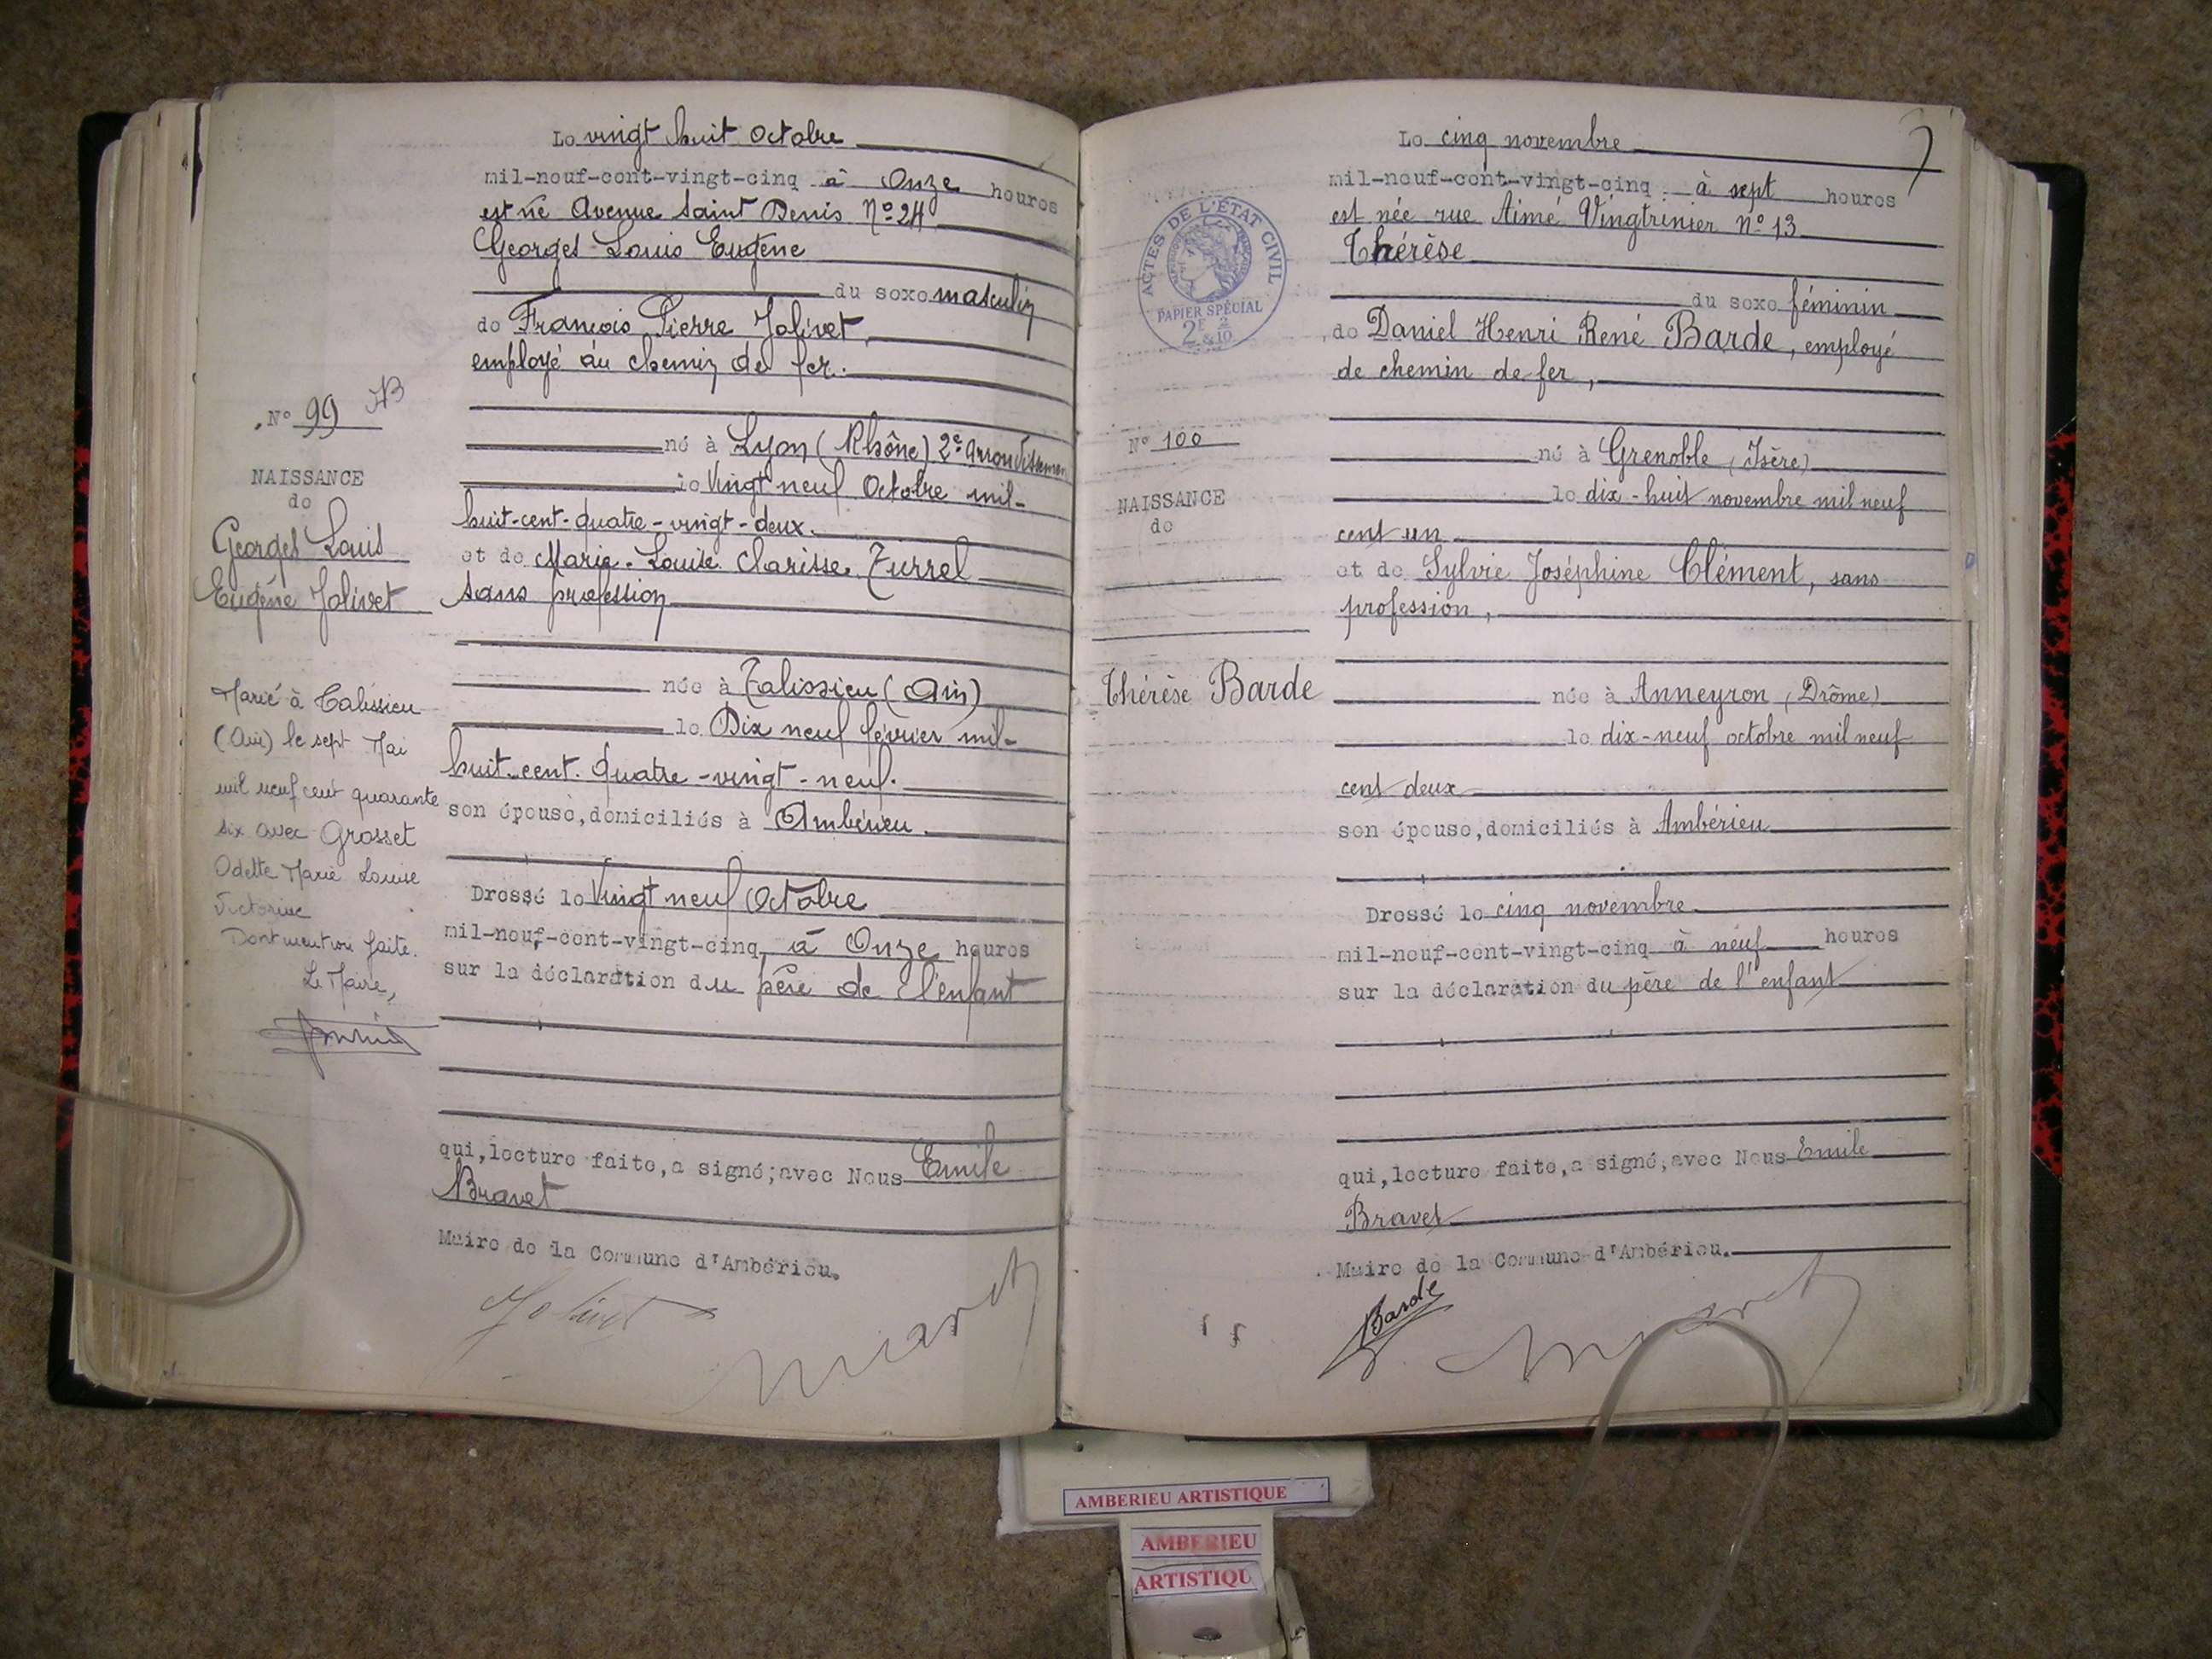 Le vingt huit Octobre
mil-neuf-cent-vingt-cinq à Onze heures
est né Avenue Saint Denis N° 24
Georges Louis Eugène
du sexe masculin
de François Pierre Jolivet,
employé au chemin de fer.
né à Lyon (Rhône) 2e Arrondissement
le Vingt neuf Octobre mil-
huit-cent-quatre-vingt-deux.
et de Marie-Louise Clarisse Turrel
sans profession
née à Talissieu (Ain)
le Dix neuf février mil-
huit-cent-quatre-vingt-neuf.
son épouse, domiciliés à Ambérieu.
Dressé le Vingt neuf Octobre
mil-neuf-cent-vingt-cinq, à Onze heures
sur la déclaration du père de l'enfant
qui, lecture faite, a signé; avec Nous Emile
Bravet
Maire de la Commune d'Ambérieu.
Jolivet
N° 99
NAISSANCE
de
Georges Louis
Eugène Jolivet
Marié à Talissieu
(Ain) le sept Mai
mil neuf cent quarante
six avec Grosset
Odette Marie Louise
Victorine
Dont mention faite.
Le Maire,
Le cinq novembre
mil-neuf-cent-vingt-cinq à sept heures
est née rue Aimé Vingtrinier N° 13
Thérèse
du sexe féminin
de Daniel Henri René Barde, employé
de chemin de fer,
né à Grenoble (Isère)
le dix-huit novembre mil neuf
cent un
et de Sylvie Joséphine Clément, sans
profession,
née à Anneyron (Drôme)
le dix-neuf octobre mil neuf
cent deux
son épouse, domiciliés à Ambérieu
Dressé le cinq novembre
mil-neuf-cent-vingt-cinq à neuf heures
sur la déclaration du père de l'enfant
qui, lecture faite, a signé; avec Nous Emile
Bravet
Maire de la Commune d'Ambérieu.
Barde
ACTES DE L'ÉTAT CIVIL
PAPIER SPÉCIAL
2F & 2/10
N° 100
NAISSANCE
de
Thérèse Barde
AMBERIEU ARTISTIQUE
AMBERIEU
ARTISTIQU